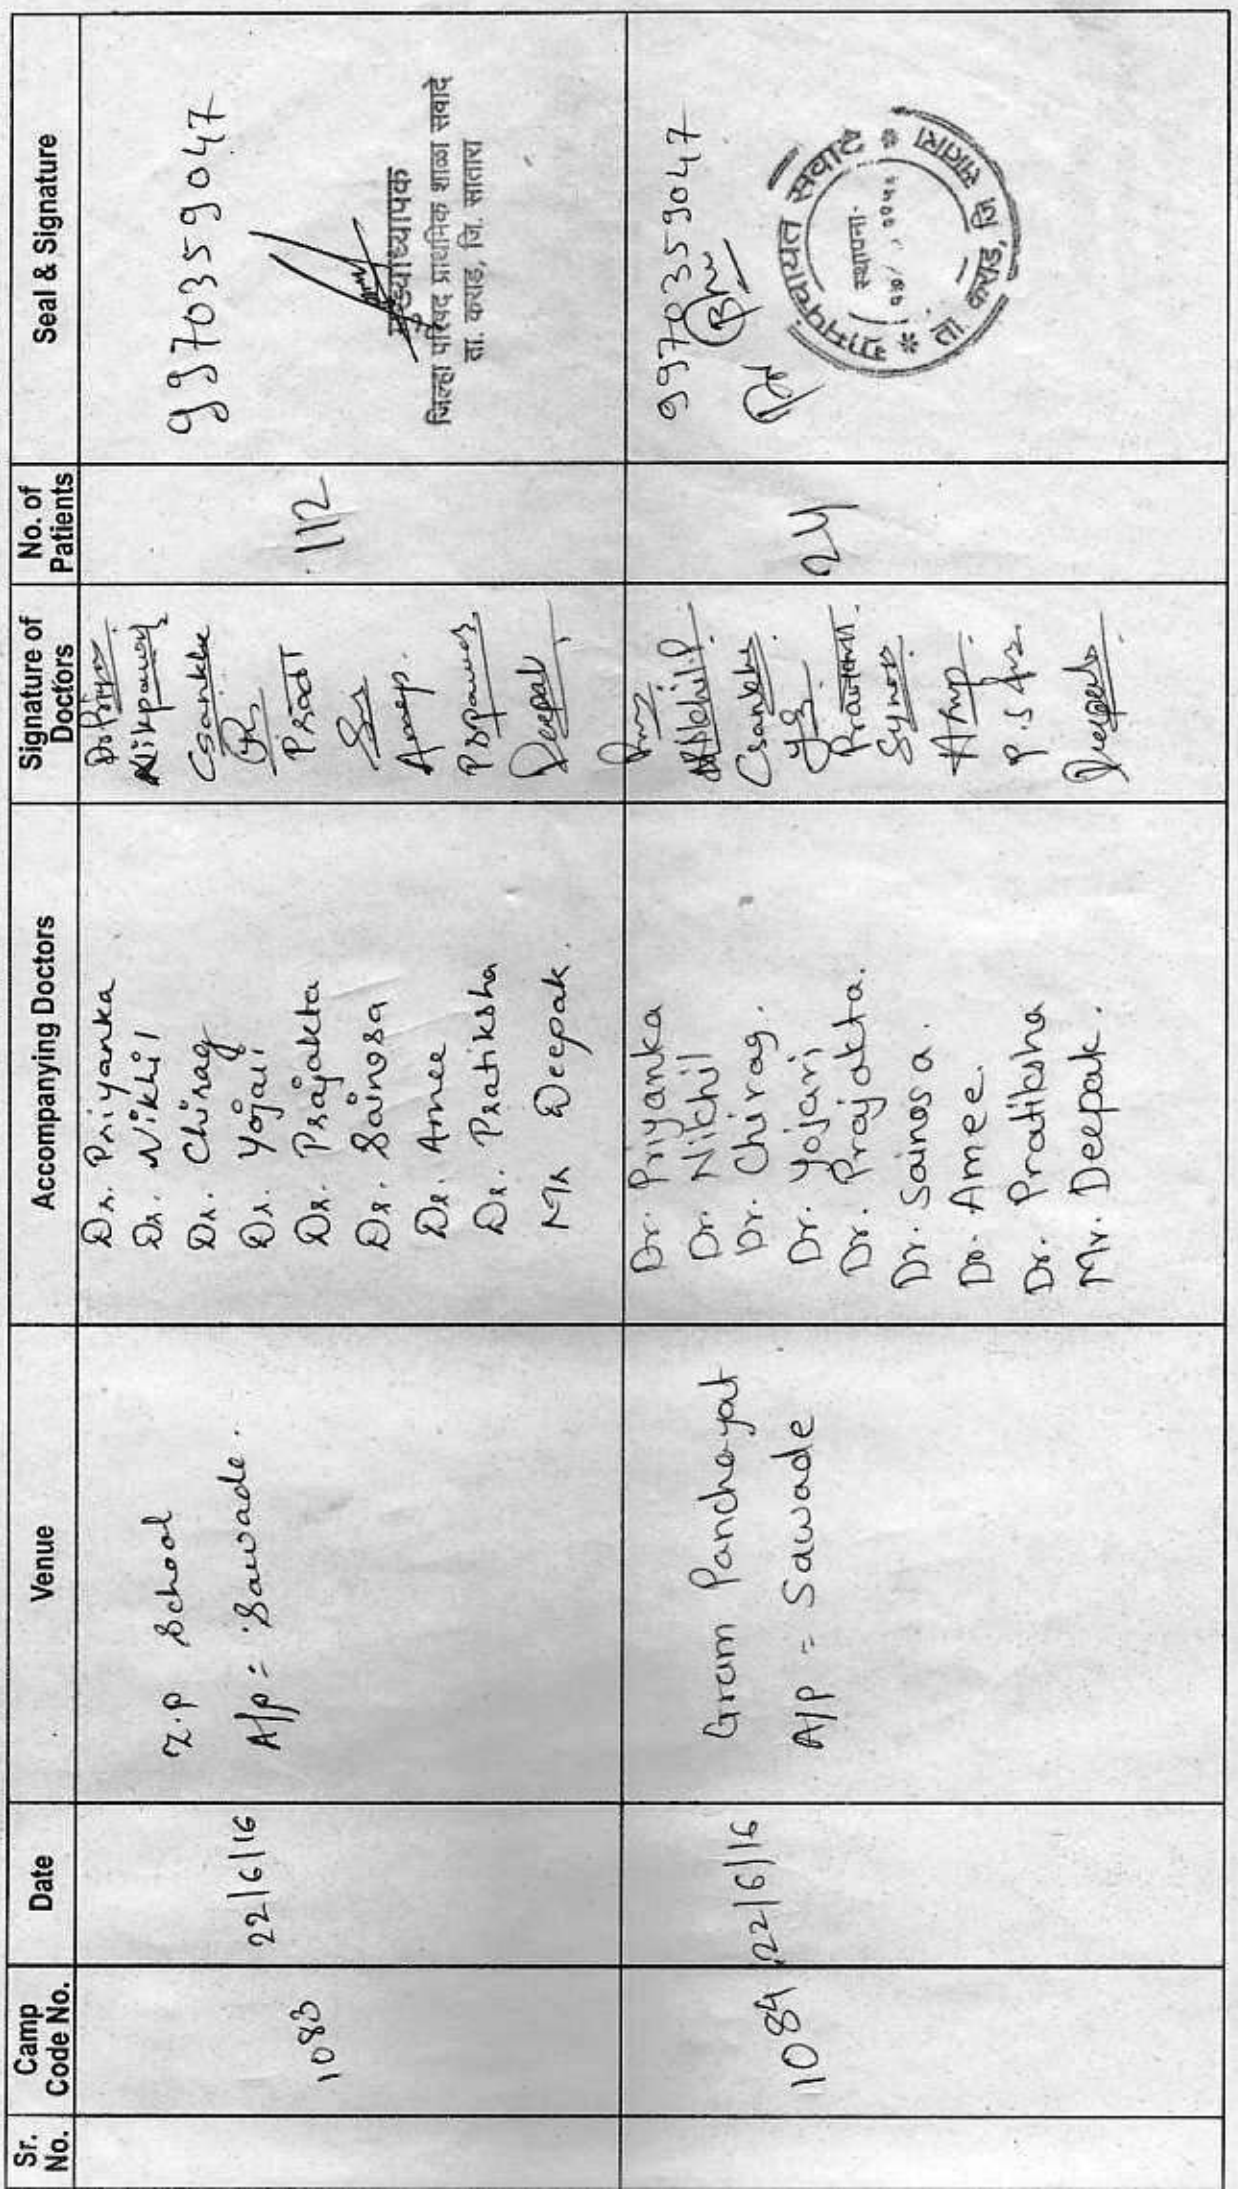 Sr. No.
Camp Code No.
Date
Venue
Accompanying Doctors
Signature of Doctors
No. of Patients
Seal & Signature
1083
22/6/16
Z.P School
A/p = Sawade.
Dr. Priyanka
Dr. Nikhil
Dr. Chirag
Dr. Yojai
Dr. Prajakta
Dr. Sainosa
Dr. Amee
Dr. Pratiksha
Mr Deepak.
Dr Priya
Nikpawar
Csankhe
Amep.
PSpawar
Deepak
112
9970359047
मुख्याध्यापक
जिल्हा परिषद प्राथमिक शाळा सवादे
ता. कराड, जि. सातारा
1084
22/6/16
Gram Panchayat
A/P = Sawade
Dr. Priyanka
Dr. Nikhil
Dr. Chirag.
Dr. Yojani
Dr. Prajakta.
Dr. Sainosa.
Dr. Amee.
Dr. Pratiksha
Mr. Deepak.
Nikhil.P.
Csankhe
Deepak
24
9970359047
ग्रामपंचायत सवादे
स्थापना.
ता कराड, जि सातारा